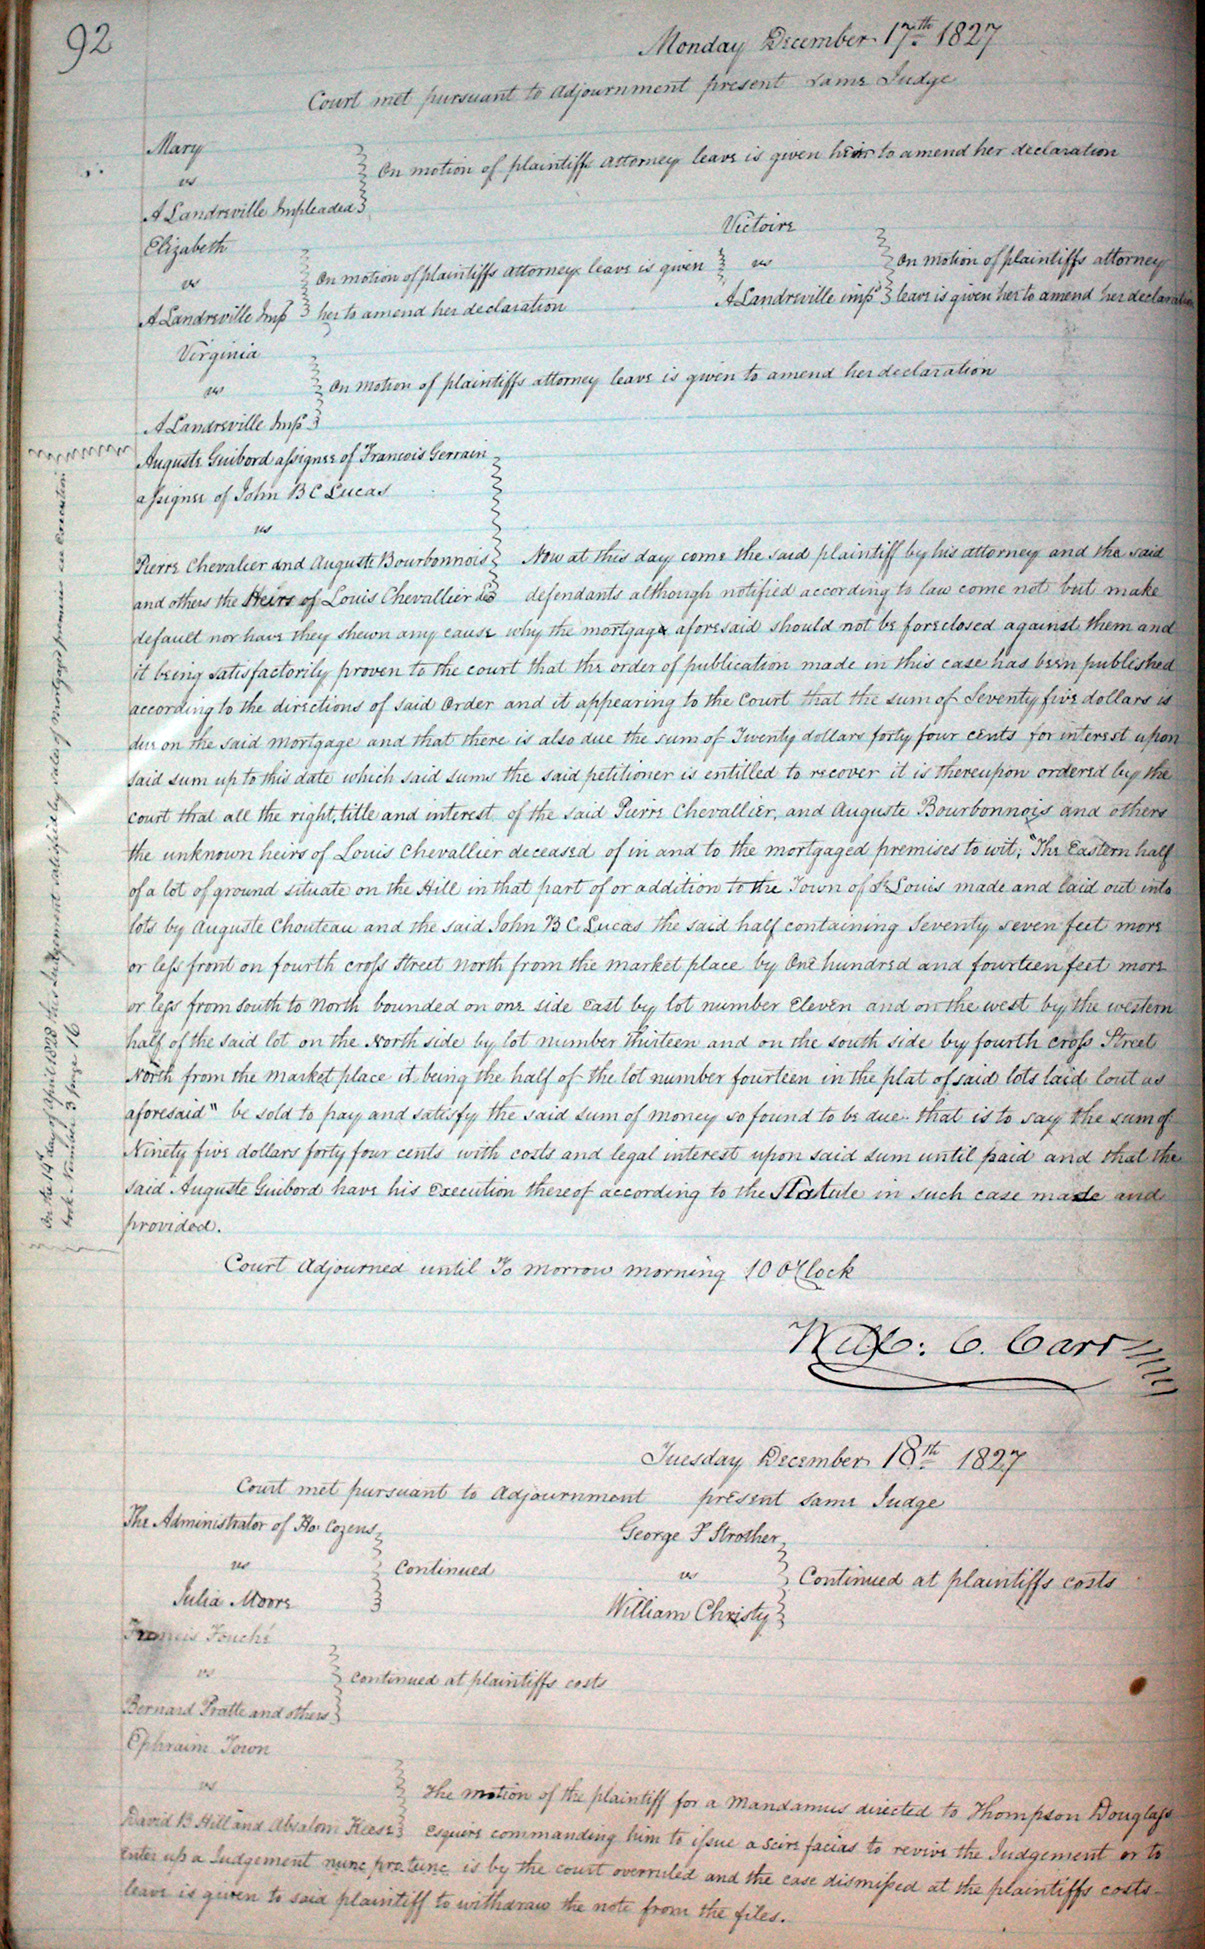 92
Monday December 17th 1827
Court met pursuant to adjournment present same Judge
Mary
vs
A Landreville Impleaded
On motion of plaintiffs attorney leave is given her to amend her declaration
Elizabeth
vs
A Landreville Imp
On motion of plaintiffs attorney leave is given
her to amend her declaration
Victoire
vs
A Landreville imp
On motion of plaintiffs attorney
leave is given her to amend her declaration
Virginia
vs
A Landreville Imp
On motion of plaintiffs attorney leave is given to amend her declaration
Auguste Guibord assignee of Francois Gerrain
assignee of John B C Lucas
vs
Pierre Chevalier and Auguste Bourbonnois
and others the Heirs of Louis Chevallier
Now at this day come the said plaintiff by his attorney and the said
defendants although notified according to law come not but make
default nor have they shewn any cause why the mortgage aforesaid should not be foreclosed against them and
it being satisfactorily proven to the court that the order of publication made in this case has been published
according to the directions of said Order and it appearing to the Court that the sum of Seventy five dollars is
due on the said mortgage and that there is also due the sum of Twenty dollars forty four cents for interest upon
said sum up to this date which said sums the said petitioner is entitled to recover it is thereupon ordered by the
court that all the right, title and interest of the said Pierre Chevallier, and Auguste Bourbonnois and others
the unknown heirs of Louis Chevallier deceased of in and to the mortgaged premises to wit; "The Eastern half
of a lot of ground situate on the Hill in that part of or addition to the Town of St Louis made and laid out into
lots by Auguste Chouteau and the said John B C Lucas the said half containing Seventy seven feet more
or less front on fourth cross Street North from the market place by One hundred and fourteen feet more
or less from South to North bounded on one side East by lot number Eleven and on the west by the western
half of the said lot on the North side by lot number thirteen and on the south side by fourth cross Street
North from the market place it being the half of the lot number fourteen in the plat of said lots laid out as
aforesaid" be sold to pay and satisfy the said sum of money so found to be due that is to say the sum of
Ninety five dollars forty four cents with costs and legal interest upon said sum until paid and that the
said Auguste Guibord have his Execution thereof according to the Statute in such case made and
provided.
On the 14th day of April 1828 this Judgement satisfied by sale of mortgage premises see Execution
book Number 3 page 16
Court Adjourned until To morrow morning 10 O'Clock
Will: C. Carr
Tuesday December 18th 1827
Court met pursuant to adjournment present same Judge
The Administrator of Ho: Cozens
vs
Julia Moore
Continued
George F Strother
vs
William Christy
Continued at plaintiffs costs
Francis Fouché
vs
Bernard Pratte and others
Continued at plaintiffs costs
Ephraim Town
vs
David B Hill and Absalom Keese
The motion of the plaintiff for a Mandamus directed to Thompson Douglass
Esquire commanding him to issue a scire facias to revive the Judgement or to
enter up a Judgement nunc pro tunc is by the court overruled and the case dismissed at the plaintiffs costs
leave is given to said plaintiff to withdraw the note from the files.